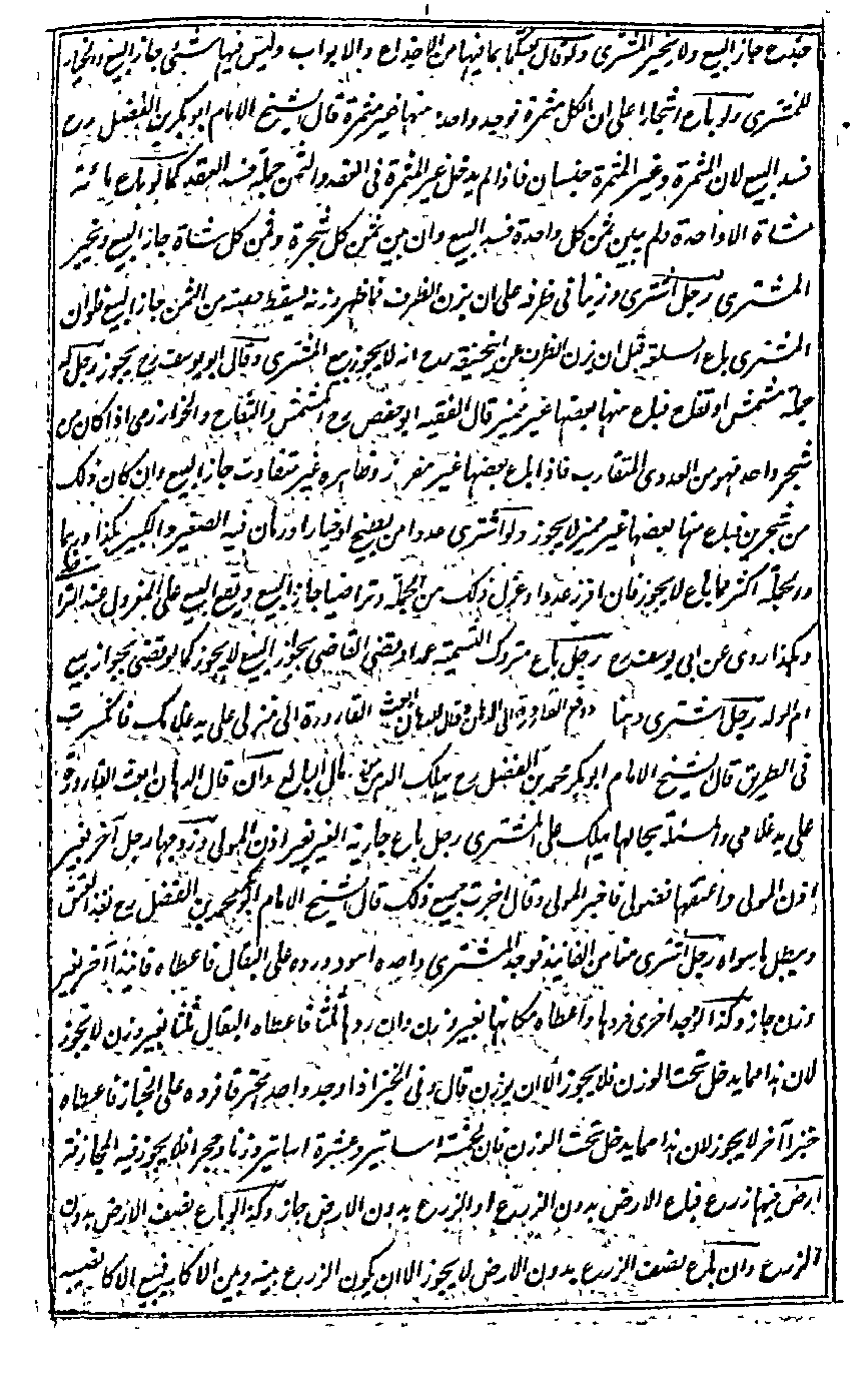 جذع جاز البيع ولا يخير المشترى ولو قال بعتكها بما فيها من الاجذاع والابواب وليس فيها شئ جاز البيع والخيار
للمشترى ولو باع اشجارا على ان الكل مثمرة فوجد واحدة منها غير مثمرة قال الشيخ الامام ابو بكر بن الفضل رح
فسد البيع لان المثمرة وغير المثمرة جنسان فاذا لم يدخل غير المثمرة فى العقد والثمن جملة فسد العقد كما لو باع مائة
شاة الا واحدة ولم يبين ثمن كل واحدة فسد البيع وان بين ثمن كل شجرة وثمن كل شاة جاز البيع ويخير
المشترى رجل اشترى زيتا فى ظرف على ان يزن الظرف فما ظهر وزنه يسقط حصته من الثمن جاز البيع فلو ان
المشترى باع السلعة قبل ان يزن الظرف عن ابيحنيفة رح انه لا يجوز بيع المشترى وقال ابو يوسف رح يجوز رجل له
جملة مشمش او تفاح فباع منها بعضها غير مميز قال الفقيه ابو حفص رح المشمش والتفاح والخوارزمى اذا كان من
شجر واحد فهو من العددى المتقارب فاذا باع بعضها غير مفرز وظاهره غير متفاوت جاز البيع وان كان ذلك
من شجرين فباع منها بعضها غير مميز لا يجوز ولو اشترى عددا من بطيخ او خيار او رمان فيه الصغير والكبير هكذا
والجملة اكثر مما باع لا يجوز فان افرز عددا وعزل ذلك من الجملة وتراضيا جاز البيع ويقع البيع على المعزول عند التراضى
وهكذا روى عن ابى يوسف رح رجل باع متروك التسمية عمدا وقضى القاضى بجواز البيع لا يجوز كما لو قضى بجواز بيع
ام الولد رجل اشترى دهنا ودفع القارورة الى الدهان وقال للدهان ابعث القارورة الى منزلى على يد غلامك فانكسرت
فى الطريق قال الشيخ الامام ابو بكر محمد بن الفضل رح يهلك الدهن من مال البائع وان قال الدهان ابعث القارورة
على يد غلامى والمسئلة بحالها يهلك على المشترى رجل باع جارية الغير بغير اذن المولى وزوجها رجل آخر بغير
اذن المولى واعتقها فضولى فاخبر المولى وقال اجزت جميع ذلك قال الشيخ الامام ابو بكر محمد بن الفضل رح نفذ العتق
ويبطل ما سواه رجل اشترى منا من الفانيذ فوجد المشترى واحدة اسود ورده على البقال فاعطاه فانيذا آخر بغير
وزن جاز وكذا لو وجد اخرى فردها واعطاه مكانها بغير وزن وان رد ثلثا فاعطاه البقال ثلثا بغير وزن لا يجوز
لان هذا مما يدخل تحت الوزن فلا يجوز الا ان يوزن قال وفى الخبز اذا وجد واحدا محترقا فرده على الخباز فاعطاه
خبزا آخر لا يجوز لان هذا مما يدخل تحت الوزن فان لخمسة اساتير وعشرة اساتير وزنا وحجرا فلا يجوز فيه المجازفة
ارض فيها زرع فباع الارض بدون الزرع او الزرع بدون الارض جاز وكذا لو باع نصف الارض بدون
الزرع وان باع نصف الزرع بدون الارض لا يجوز الا ان يكون الزرع بينه وبين الاكار فيبيع الاكار نصيبه